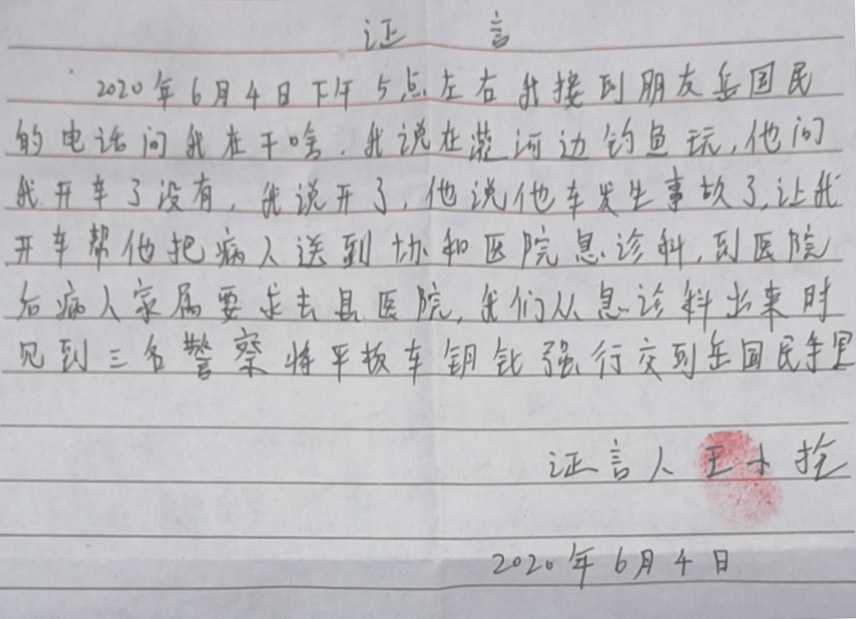 证 言
2020年6月4日下午5点左右我接到朋友岳国民
的电话问我在干啥,我说在灌河边钓鱼玩,他问
我开车了没有,我说开了,他说他车发生事故了,让我
开车帮他把病人送到协和医院急诊科,到医院
后病人家属要求去县医院,我们从急诊科出来时
见到三名警察将平板车钥匙强行交到岳国民手里
证言人 王小拴
2020年6月4日